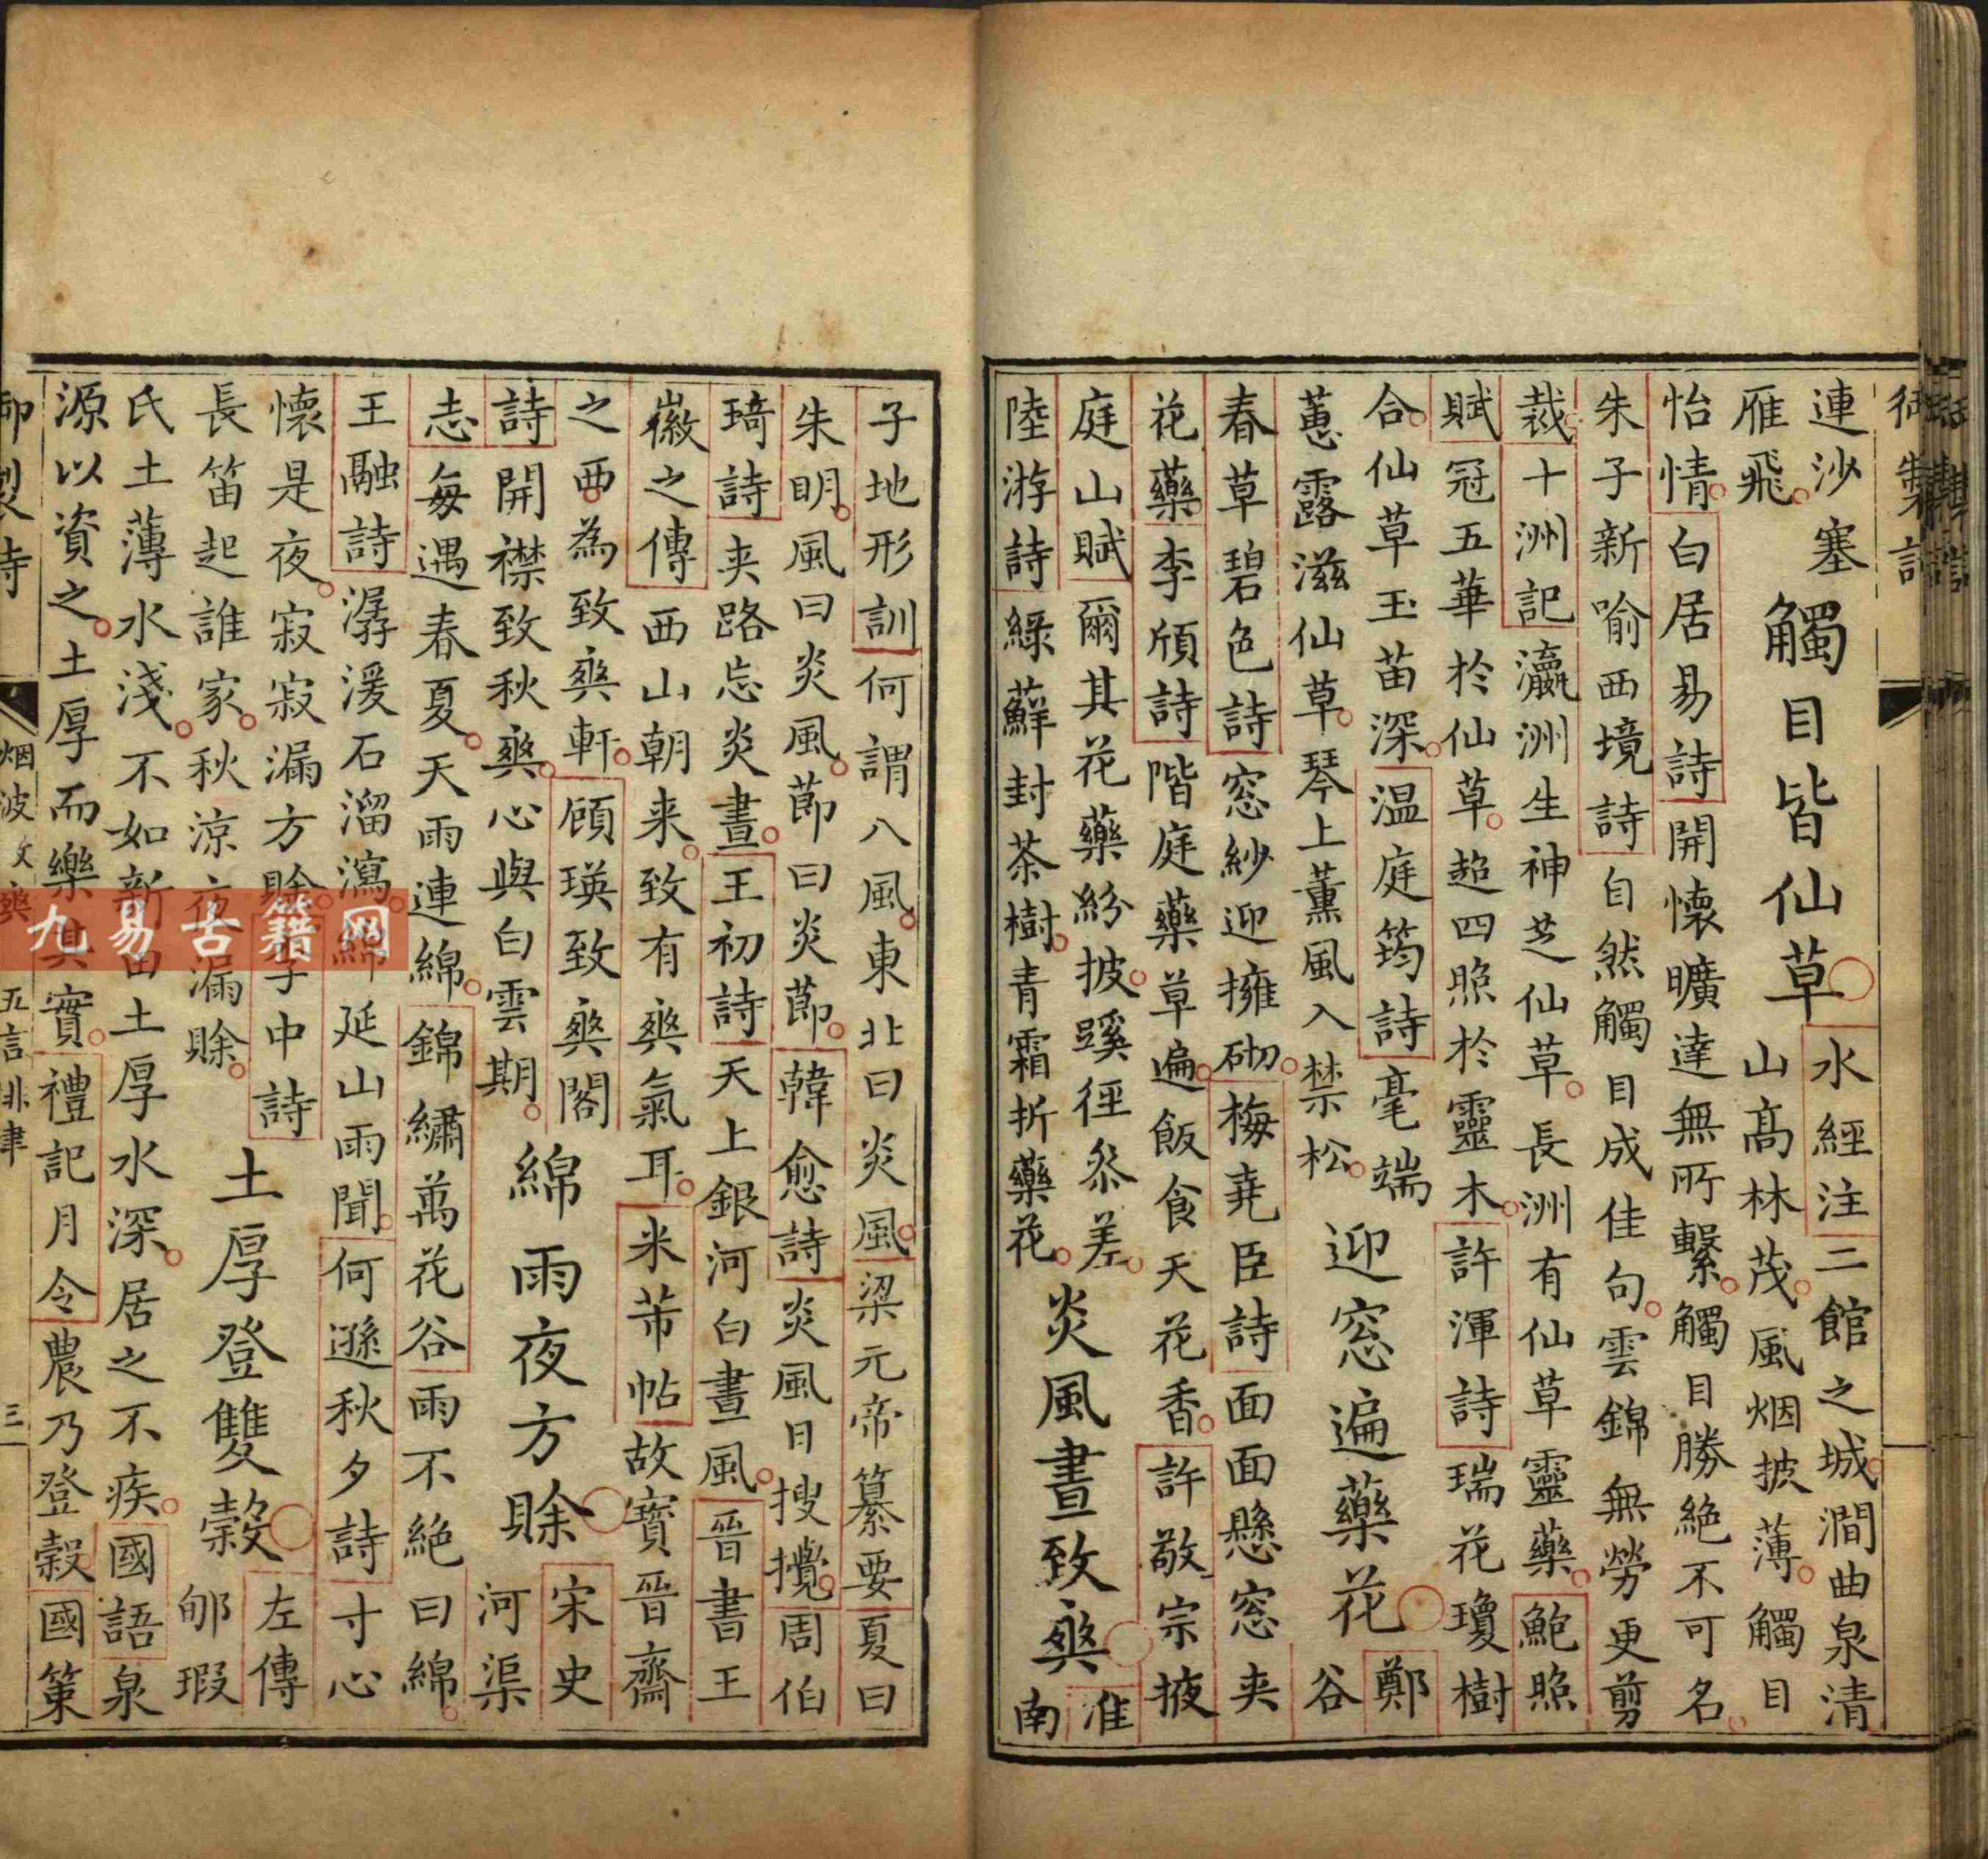 連沙塞
雁飛
觸目皆仙草
水經注二館之城澗曲泉清
山高林茂風烟披薄觸目
怡情白居易詩開懷曠達無所繫觸目勝絶不可名
朱子新喻西境詩自然觸目成佳句雲錦無勞更剪
裁十洲記瀛洲生神芝仙草長洲有仙草靈藥鮑照
賦冠五華於仙草超四照於靈木許渾詩瑞花瓊樹
合仙草玉苗深温庭筠詩毫端
蕙露滋仙草琴上薰風入禁松
迎窓遍藥花
鄭
谷
春草碧色詩窓紗迎擁砌梅堯臣詩面面懸窓夾
花藥李頎詩階庭藥草遍飯食天花香許敬宗掖
庭山賦爾其花藥紛披蹊徑叅差
陸游詩綠蘚封茶樹青霜折藥花
炎風晝致爽
淮
南
子地形訓何謂八風東北曰炎風梁元帝纂要夏曰
朱明風曰炎風節曰炎節韓愈詩炎風日搜攪周伯
琦詩夾路忘炎晝王初詩天上銀河白晝風晉書王
徽之傳西山朝来致有爽氣耳米芾帖故寶晉齋
之西為致爽軒顧瑛致爽閣
詩開襟致秋爽心與白雲期
綿雨夜方賒
宋史
河渠
志每遇春夏天雨連綿錦繡萬花谷雨不絶曰綿
王融詩潺湲石溜瀉綿延山雨聞何遜秋夕詩寸心
懷是夜寂寂漏方賒李中詩
長笛起誰家秋涼夜漏賒
土厚登雙穀
左傳
郇瑕
氏土薄水淺不如新田土厚水深居之不疾國語泉
源以資之土厚而樂其實禮記月令農乃登穀國策
御製詩
烟波致爽
五言排律
三
九易古籍网